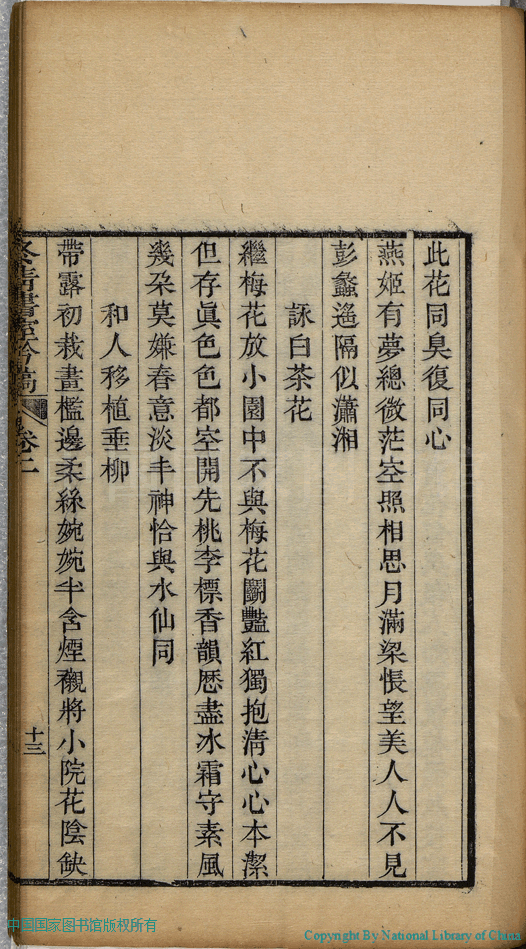 此花同臭復同心
燕姬有夢總微茫空照相思月滿梁悵望美人人不見
彭蠡遙隔似瀟湘
詠白茶花
繼梅花放小園中不與梅花鬭豔紅獨抱清心心本潔
但存眞色色都空開先桃李標香韻歷盡冰霜守素風
幾朶莫嫌春意淡丰神恰與水仙同
和人移植垂柳
帶露初栽畫檻邊柔絲婉婉半含煙襯將小院花陰缺
書
稿
卷二
十三
中国国家图书馆版权所有
Copyright By National Library of China